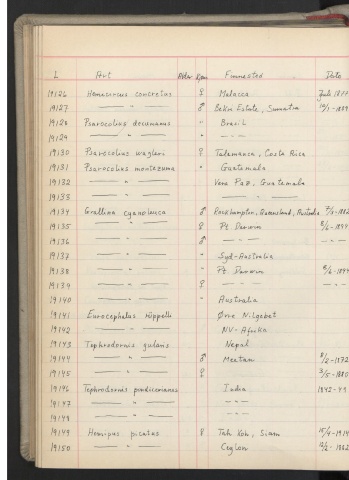 L Art Alder Kjønn Finnested Dato
19126 Hemicircus concretus ♀ Malacca Juli
19127 — " — ♂ Bekri Estate, Sumatra
19128 Psarocolius decumanus " Brasil
19129 — " — " - " -
19130 Psarocolius wagleri ♀ Talamanca, Costa Rica
19131 Psarocolius montezuma " Guatemala
19132 — " — Vera Paz, Guatemala
19133 — " — - " -
19134 Grallina cyanoleuca ♂ Rockhampton, Queensland, Australia
19135 — " — ♀ Pt. Darwin
19136 — " — ♂ - " - - " -
19137 — " — " Syd-Australia
19138 — " — " Pt. Darwin
19139 — " — ♀ - " - - " -
19140 — " — Australia
19141 Eurocephalus rüppelli Øvre
19142 — " — NV-Afrika
19143 Tephrodornis gularis Nepal
19144 — " — ♂ Meetan 8/2-1872
19145 — " — ♀ 3/5-1880
19146 Tephrodornis pondicerianus India 1842-49
19147 — " —
19148 — " —
19149 Hemipus picatus Tah Koh, Siam 15/4-1914
19150 — " — Ceylon